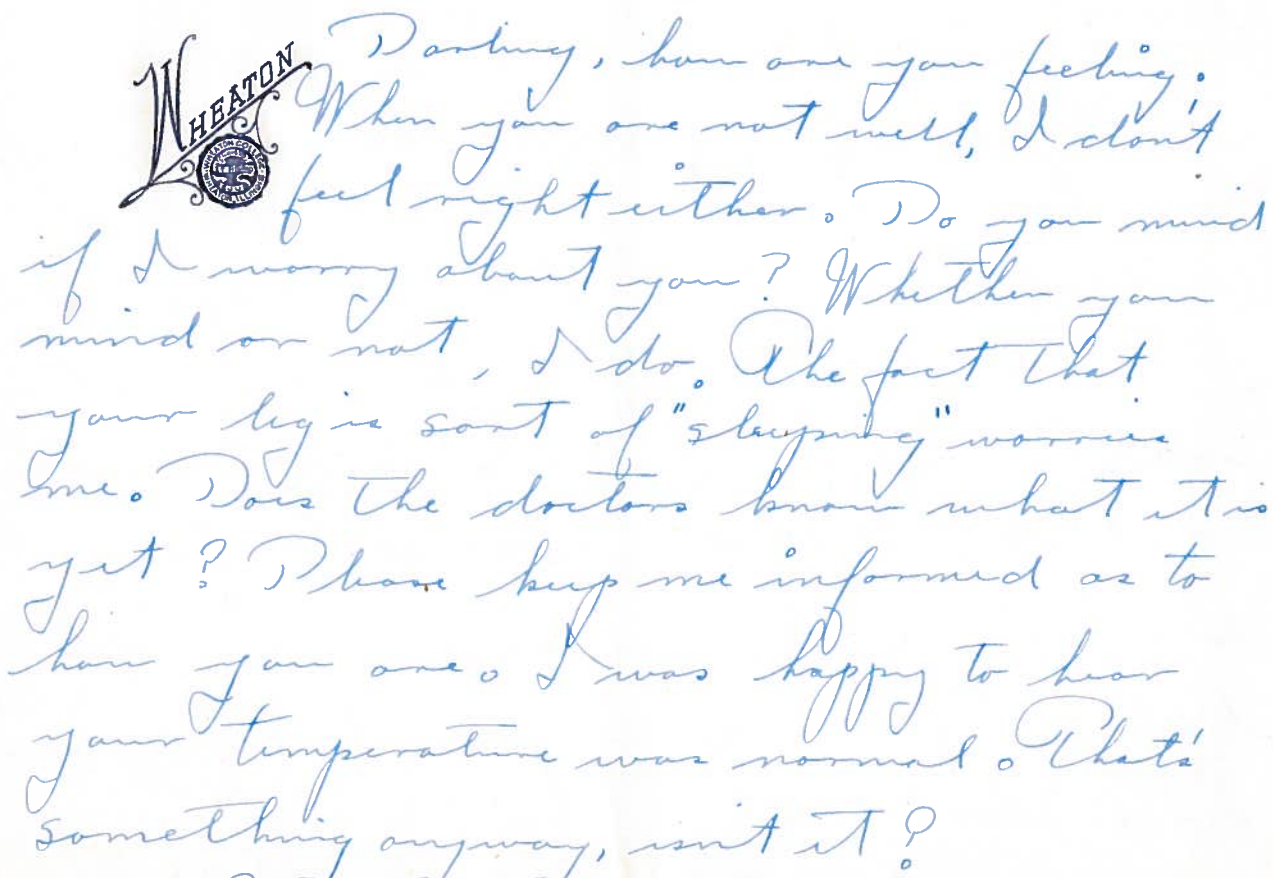 WHEATON
WHEATON COLLEGE
WHEATON, ILLINOIS
Darling, how are you feeling.
When you are not well, I don't
feel right either. Do you mind
if I worry about you? Whether you
mind or not, I do. The fact that
your leg is sort of "sleeping" worries
me. Does the doctors know what it is
yet? Please keep me informed as to
how you are. I was happy to hear
your temperature was normal. That's
something anyway, isn't it?